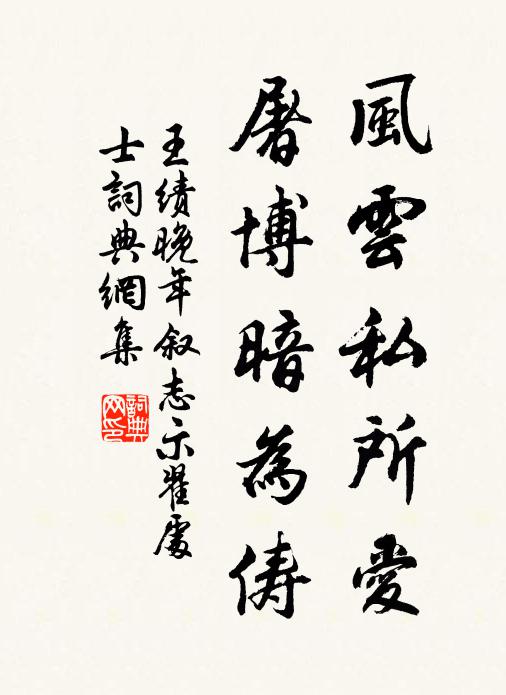 風雲私所愛
屠博暗為儔
王績晚年叙志示翟處
士詞典網集
詞典
网印